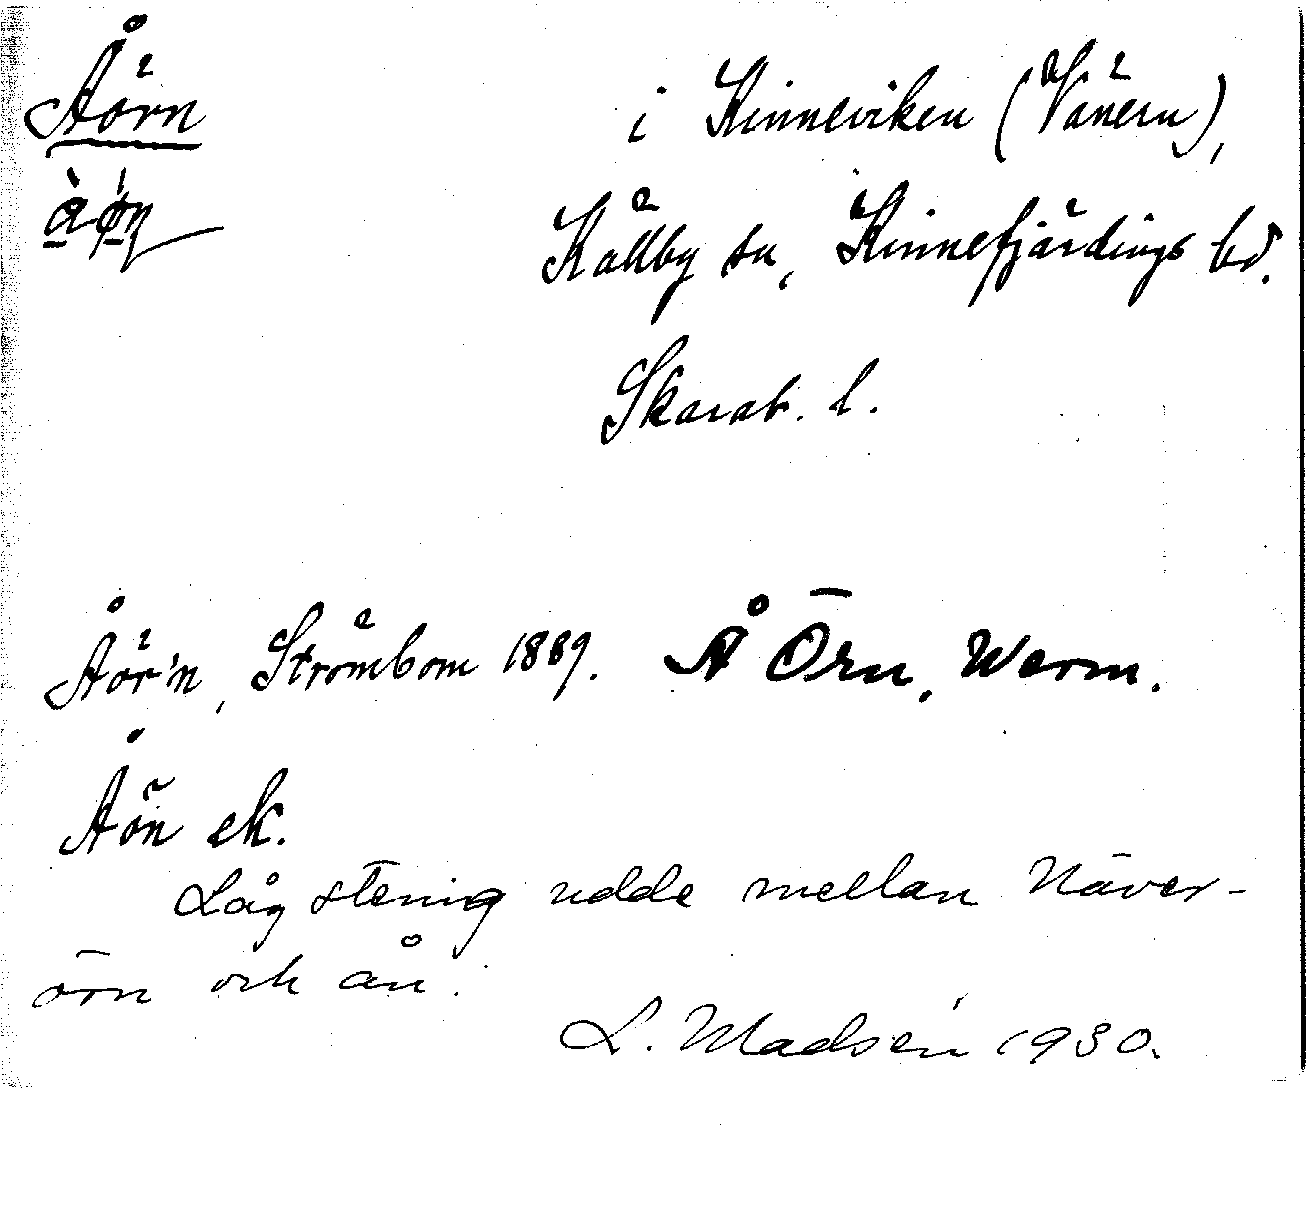 Åörn
i Kinneviken (Vänern),
Källby sn, Kinnefjärdings hd.
Skarab. l.
Åör'n, Strömbom 1889. Å Örn, Werm.
Åön ek.
Låg stenig udde mellan Näver-
örn och ån.
L. Madsén 1930.